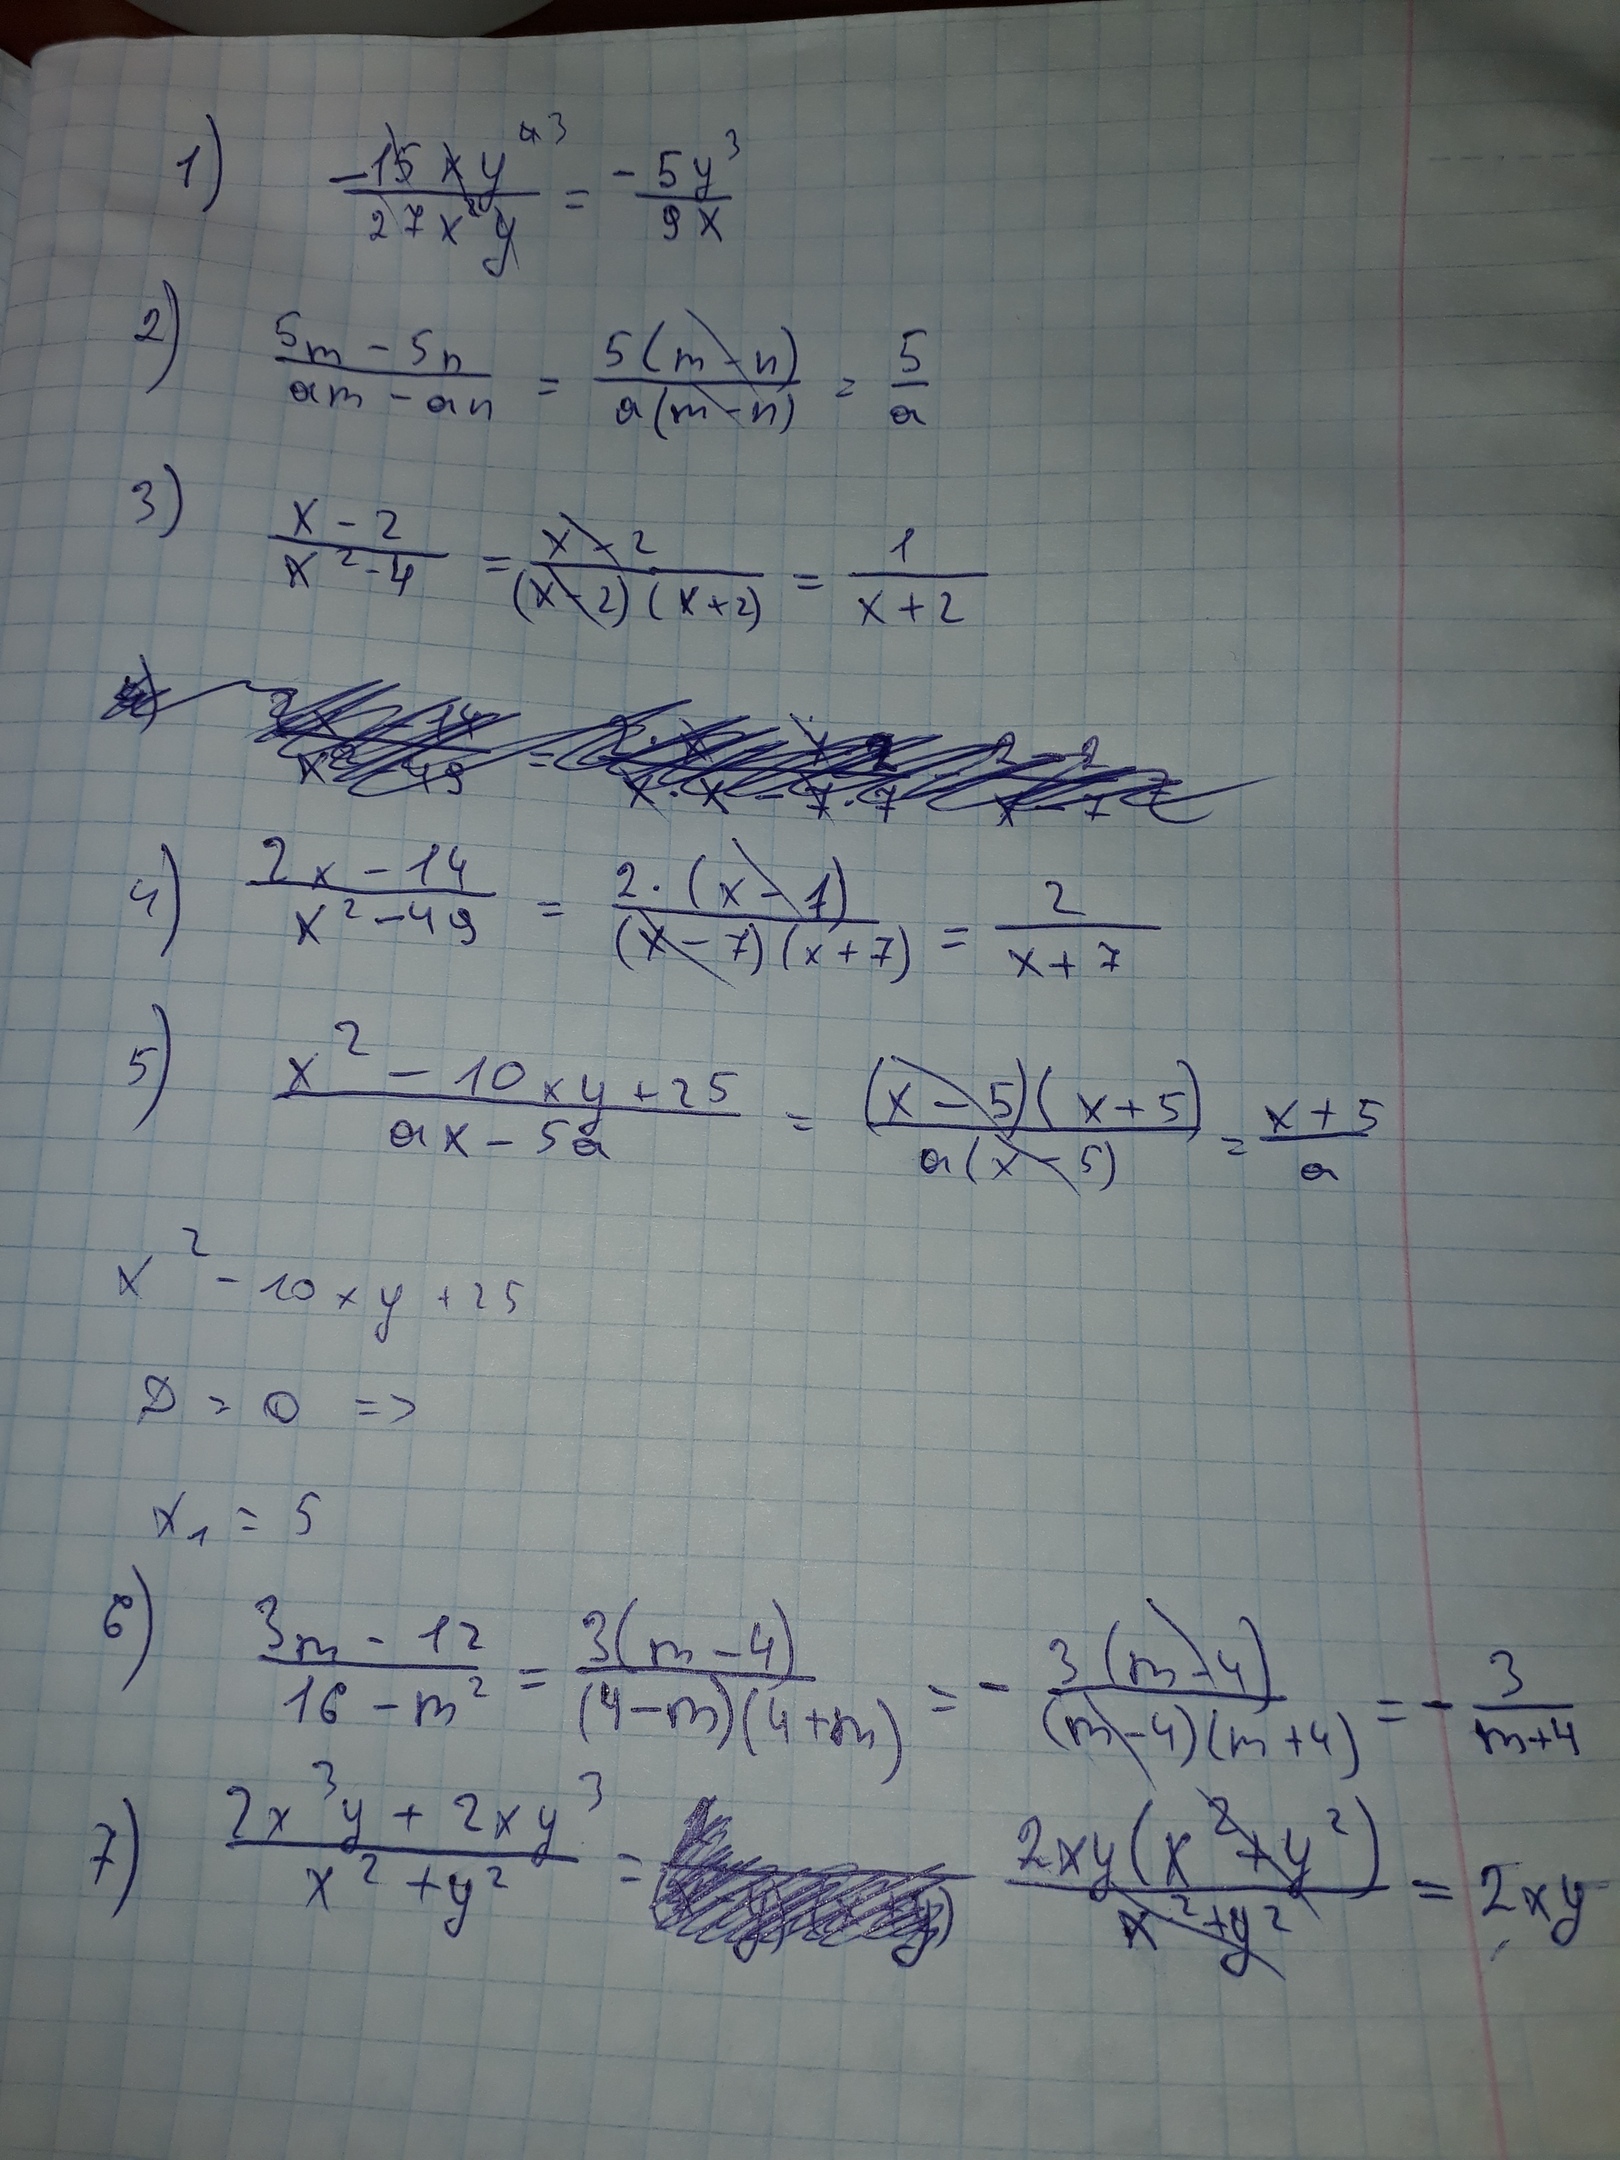 1) -15xy⁴³/27x²y = -5y³/9x
2) 5m-5n/am-an = 5(m-n)/a(m-n) = 5/a
3) x-2/x²-4 = x-2/(x-2)(x+2) = 1/x+2
4) 2x-14/x²-49 = 2·(x-7)/(x-7)(x+7) = 2/x+7
5) x²-10xy+25/ax-5a = (x-5)(x+5)/a(x-5) = x+5/a
x²-10xy+25
D=0 =>
x₁=5
6) 3m-12/16-m² = 3(m-4)/(4-m)(4+m) = -3(m-4)/(m-4)(m+4) = -3/m+4
7) 2x³y+2xy³/x²+y² = 2xy(x²+y²)/x²+y² = 2xy